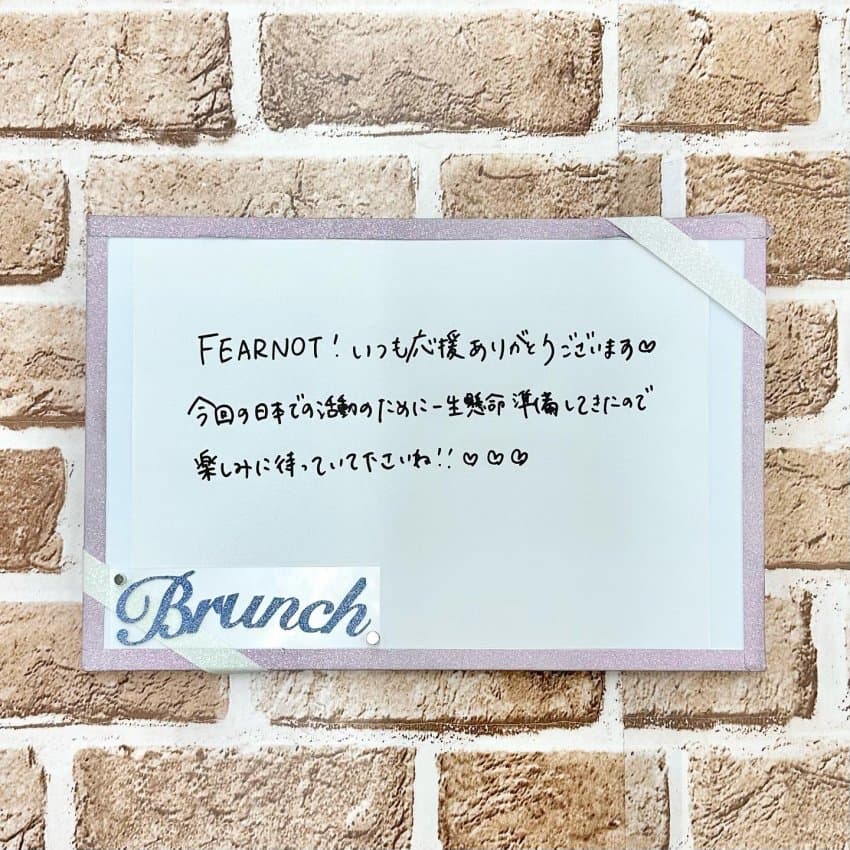 FEARNOT! いつも応援ありがとうございます♡
今回の日本での活動のために一生懸命準備してきたので
楽しみに待っていて下さいね!! ♡ ♡ ♡
Brunch